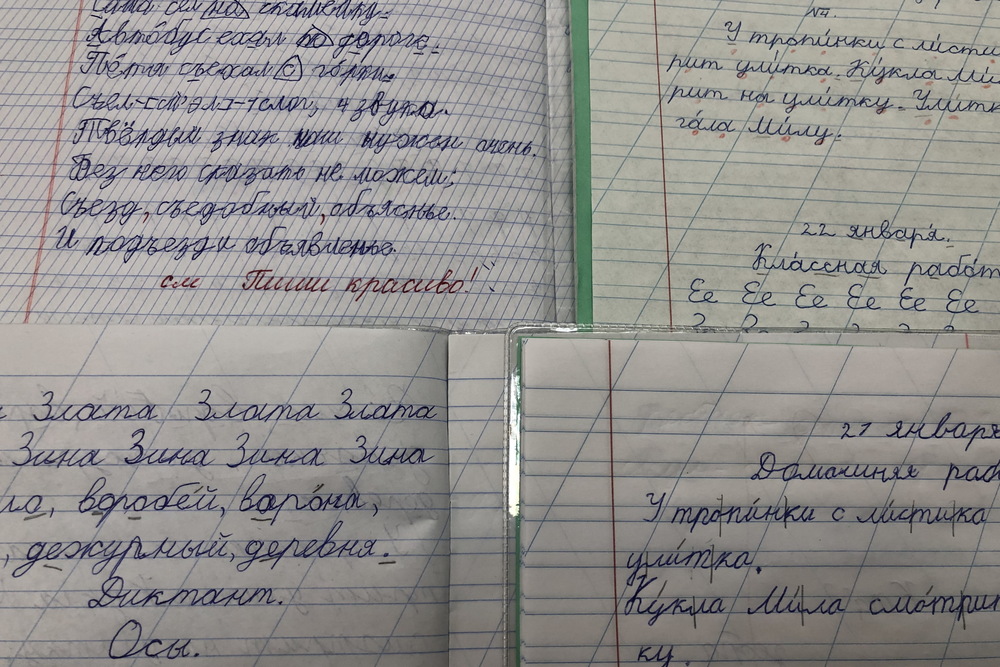 Саша сел на скамейку.
Автобус ехал по дороге.
Петя съехал с горки.
Съел- 1 слог, 4 звука.
Твёрдый знак нам нужен очень.
Без него сказать не можем:
Съезд, съедобный, объясненье.
И подъезд и объявленье.
см Пиши красиво!
№4.
У тропинки с листи
рит улитка. Кукла Ми
рит на улитку. Улитк
гала Милу.
22 января.
Классная работ
Ее Ее Ее Ее Ее Ее
Злата Злата Злата
Зина Зина Зина Зина
воробей, ворона,
дежурный, деревня.
Диктант.
Осы.
21 января
Домашняя раб
У тропинки с листика
улитка.
Кукла Мила смотрит
ку.